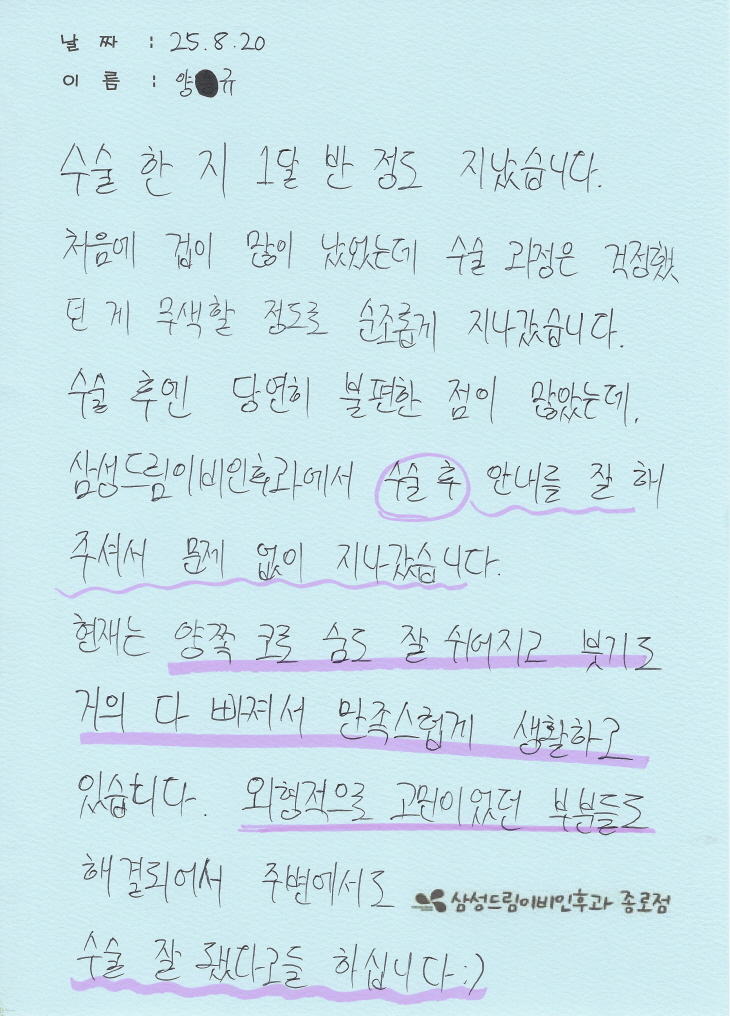 날 짜 : 25.8.20
이 름 : 양 규
수술 한 지 1달 반 정도 지났습니다.
처음에 겁이 많이 났었는데 수술 과정은 걱정했
던 게 무색할 정도로 순조롭게 지나갔습니다.
수술 후엔 당연히 불편한 점이 많았는데,
삼성드림이비인후과에서 수술 후 안내를 잘 해
주셔서 문제 없이 지나갔습니다.
현재는 양쪽 코로 숨도 잘 쉬어지고 붓기도
거의 다 빠져서 만족스럽게 생활하고
있습니다. 외형적으로 고민이었던 부분들도
해결되어서 주변에서도
삼성드림이비인후과 종로점
수술 잘 됐다고들 하십니다:)